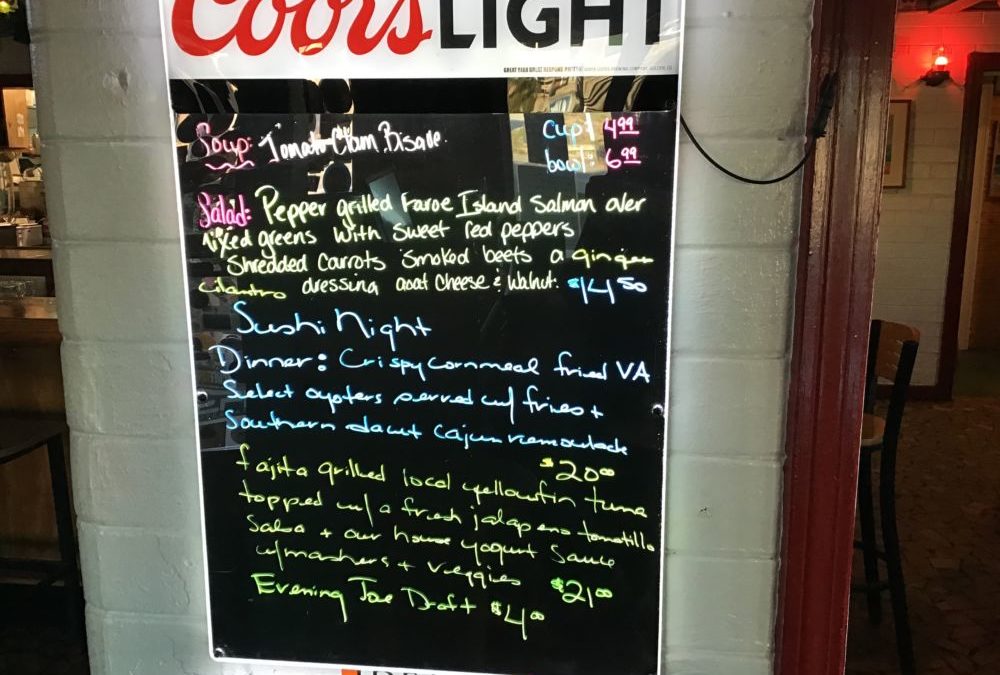 Coors LIGHT
GREAT BEER GREAT RESPONSIBILITY
Soup: Tomato Clam Bisque. Cup: 4.99
bowl: 6.99
Salad: Pepper grilled Faroe Island Salmon over
mixed greens with sweet red peppers
Shredded Carrots Smoked beets a ginger
cilantro dressing goat cheese & walnut. $14.50
Sushi Night
Dinner: Crispy cornmeal fried VA
Select oysters served w/ fries +
Southern slaw + Cajun remoulade
$20.00
fajita grilled local yellowfin tuna
topped w/ a fresh jalapeno tomatillo
Salsa + our house yogurt sauce
w/mashers + veggies $21.00
Evening Joe Draft $4.00